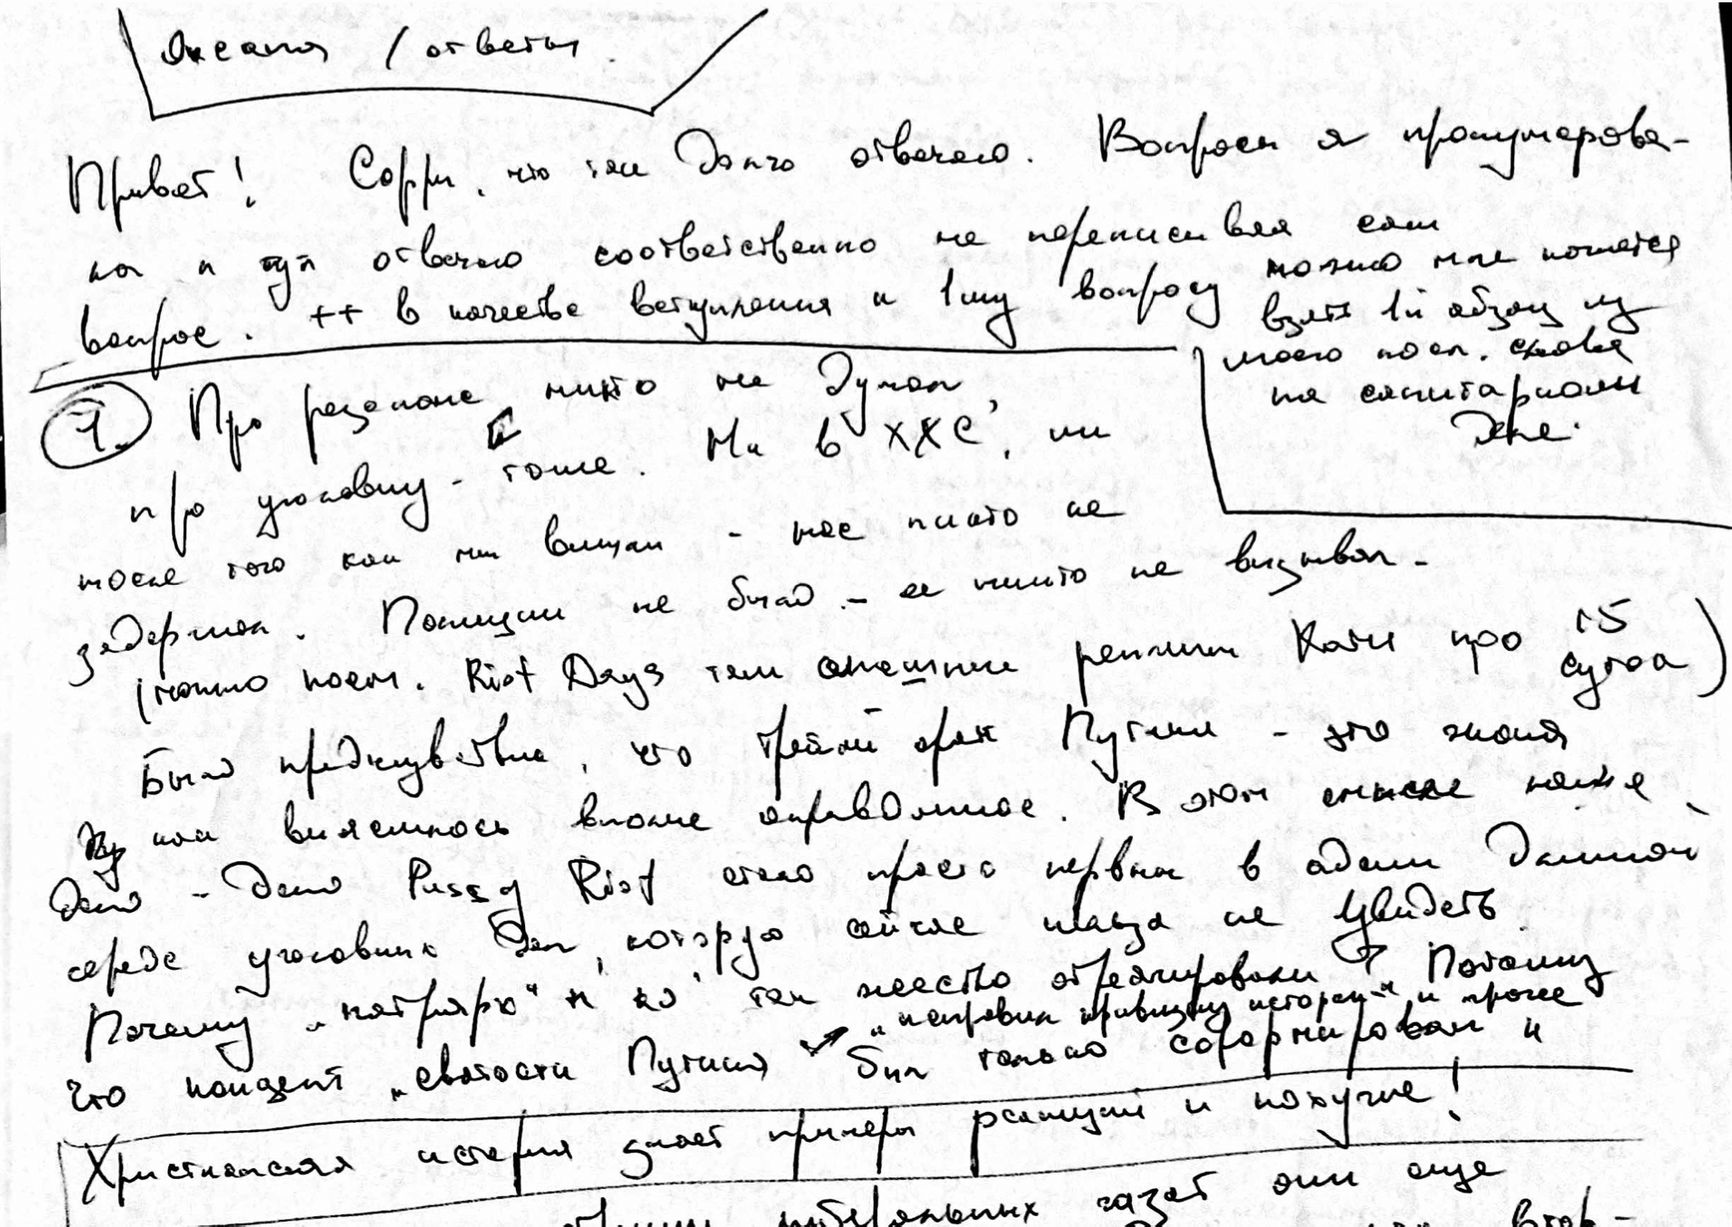 Оксана / ответы
Привет! Сорри, что так долго отвечаю. Вопросы я пронумерова-
ла и тут отвечаю соответственно не переписывая сам
вопрос. ++ в качестве вступления к 1му вопросу
можно мне кажется
взять 1й абзац из
моего посл. слова
на санитарном
дне.
1. Про резонанс никто не думал,
про уголовку - тоже. Ни в ХХС, ни
после того как мы вышли - нас никто не
задержал. Полиции не было - ее никто не вызывал.
(можно посм. Riot Days там смешные реплики Кати про 15
суток)
Было предчувствие, что третий срок Путина - это
как выяснилось вполне оправданное. В этом смысле наше
дело - дело Pussy Riot стало просто первым в адски длинной
череде уголовных дел, которую сейчас нельзя не увидеть.
Почему „патриарх" и ко так жестко отреагировали? Потому
что концепт „святости Путина „исправил кривизну истории" и прочее
был только сформирован и
Христианская история знает примеры реакций и похуже!
либеральных газет они еще